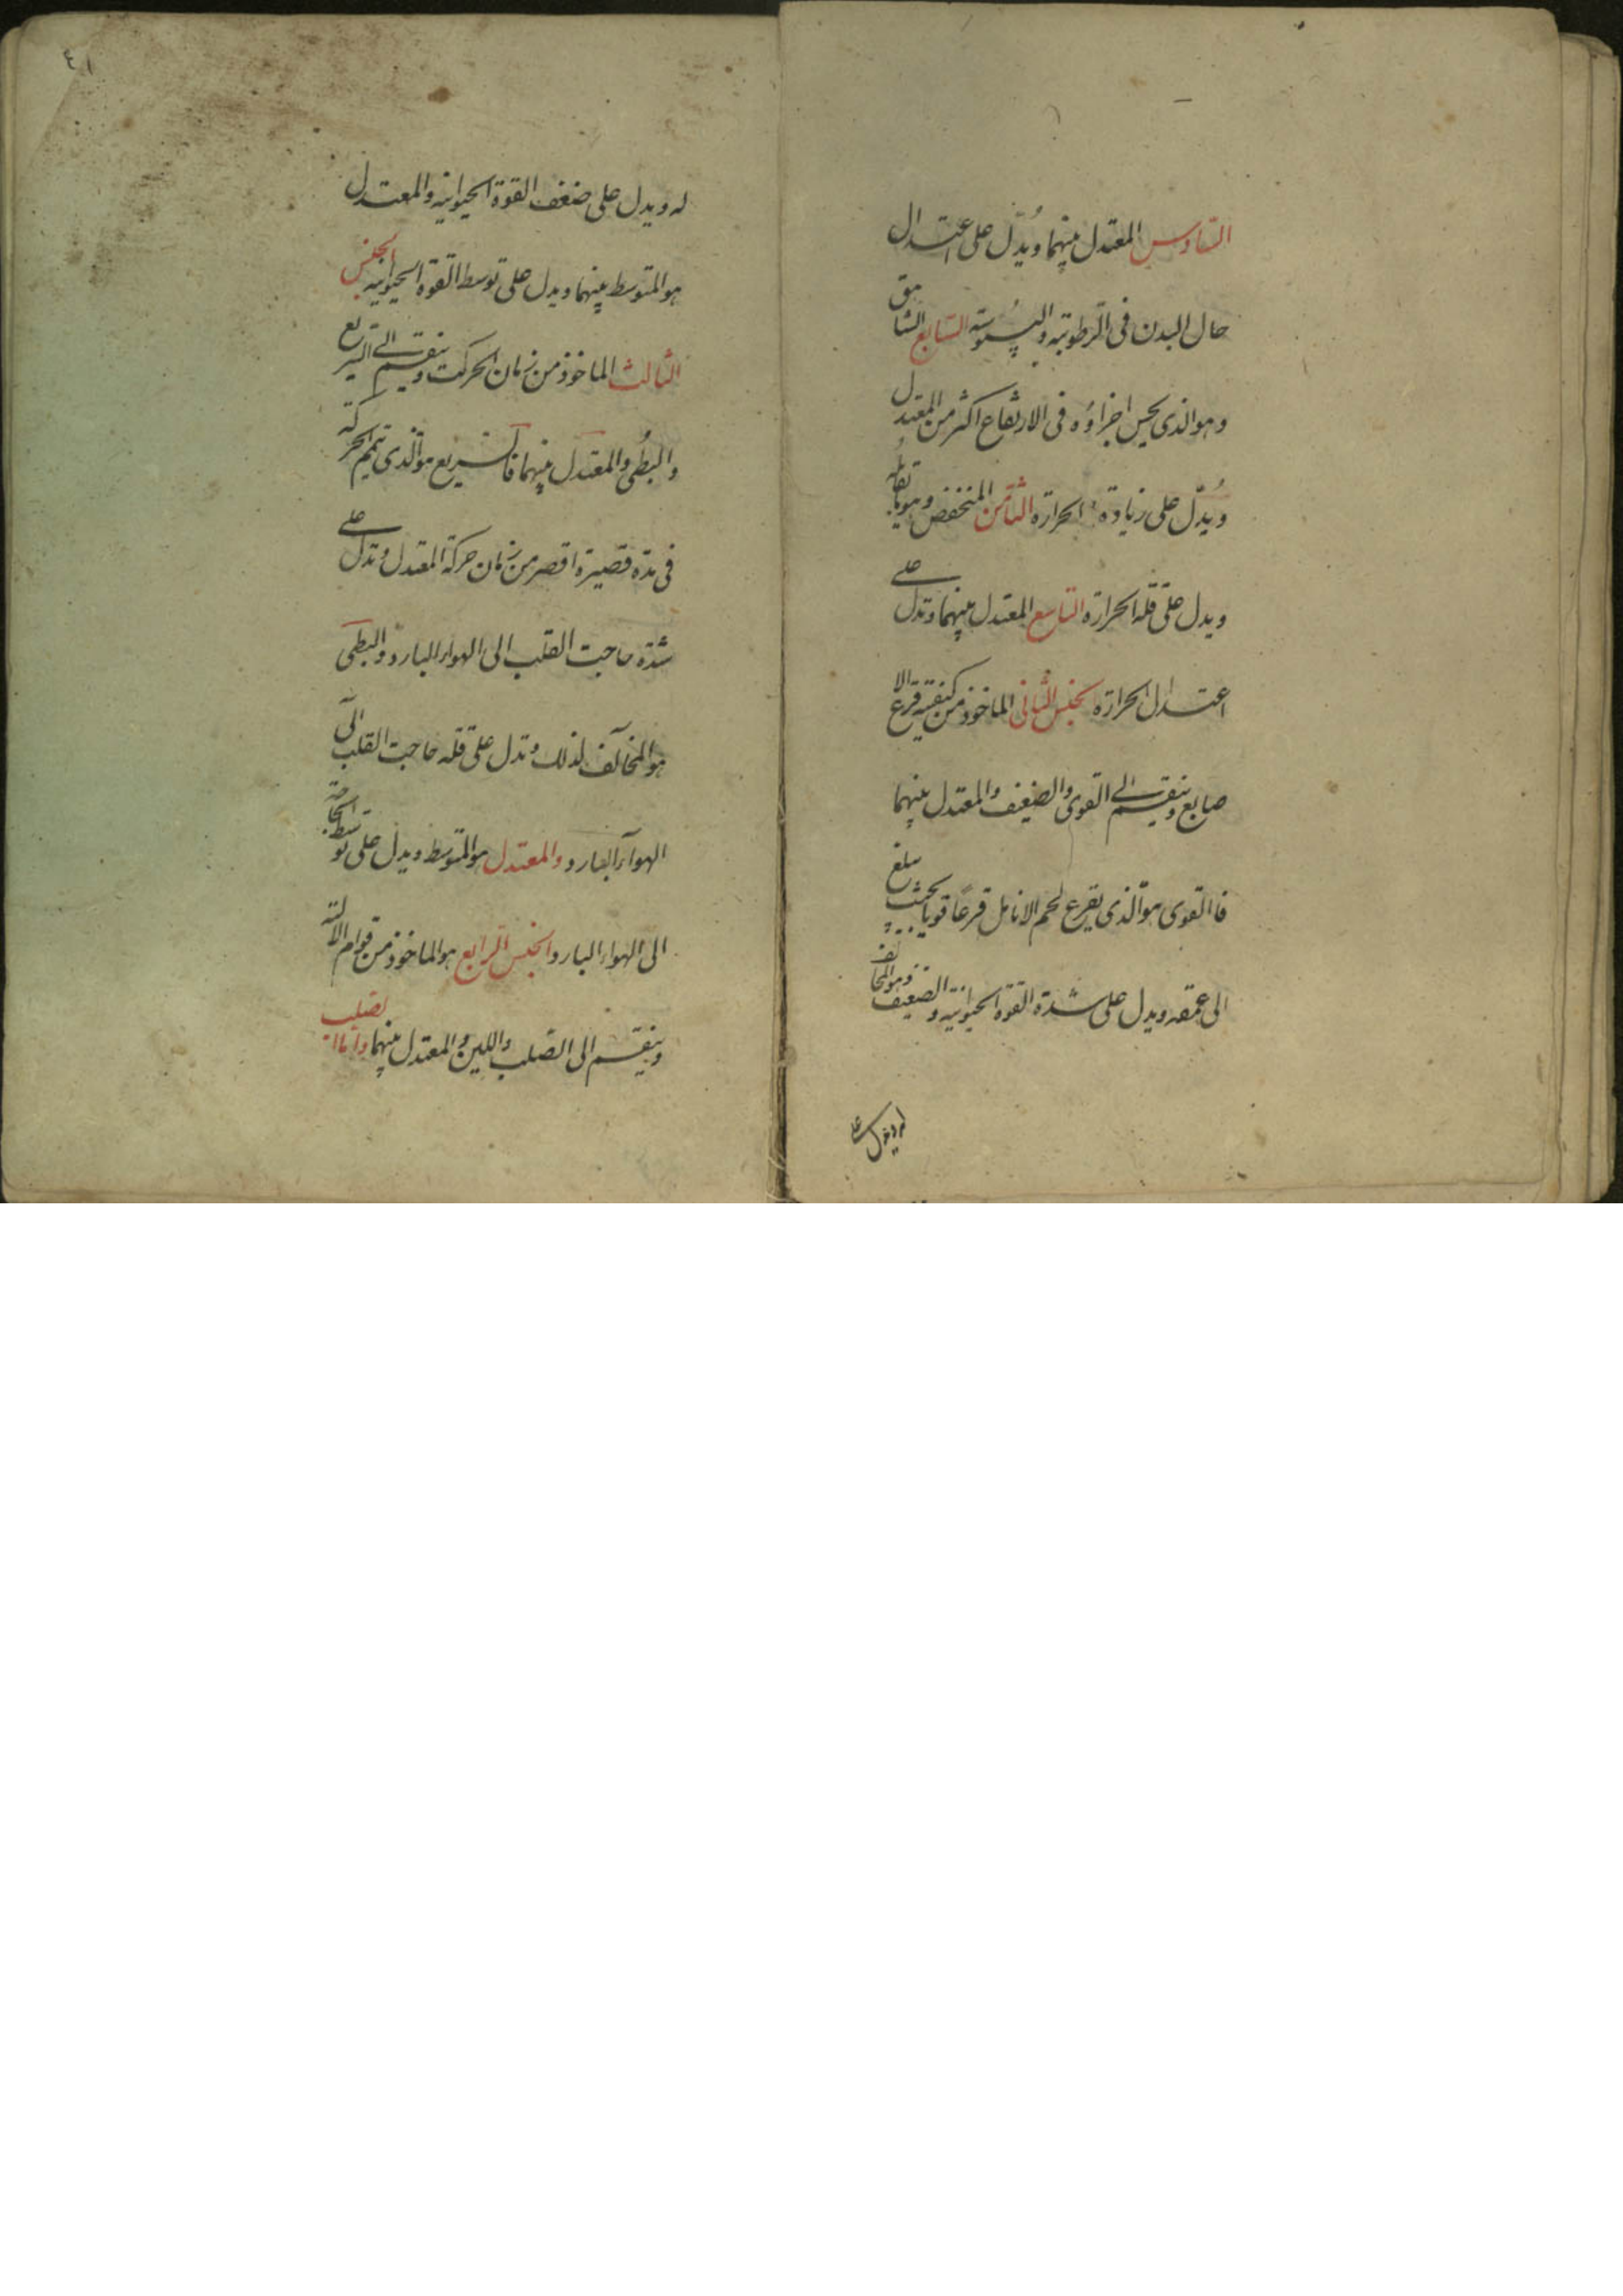 السادس المعتدل بينهما ويُدّل على اعتدال
حال البدن فى الرطوبته واليبُوسته السّابع الشاهق
وهو الذى يحس اجزاؤه فى الارتفاع اكثر من المعتدل
ويُدّل على زيادة الحرارة الثامن المنخفض وهو يقابله
ويدل على قلة الحرارة التاسع المعتدل بينهما وتدل على
اعتدال الحرارة الجنس الثّانى الماخوذ من كيفية قرع الا
صابع وينقسم الى القوى والضعيف والمعتدل بينهما
فاالقوى هو الّذى يقرع لحم الانامل قرعًا قويا بحيث يبلغ
الى عمقه ويدل على شدة القوة الحيوانية والضعيف وهو المخالف
له ويدل على
٤١
له ويدل على ضعف القوة الحيوانيه والمعتدل
هو المتوسط بينهما ويدل على توسط القوة الحيوانيه الجنس
الثالث الماخوذ من زمان الحركت وينقسم الى السريع
والبطُى والمعتدل بينهما فالسّريع هو الّذى يتمم الحركة
فى مدة قصيرة اقصر من زمان حركة المعتدل وتدل على
شدة حاجت القلب الى الهواء البارد والبطى
هو المخالف لذلك وتدل على قله حاجت القلب الى
الهواء البارد والمعتدل هو المتوسط ويدل على توسط الحاجة
الى الهواء البارد الجنس الرابع هو الماخوذ من قوام الالة
وينقسم الى الصّلب واللين والمعتدل بينهما واماا لصلب